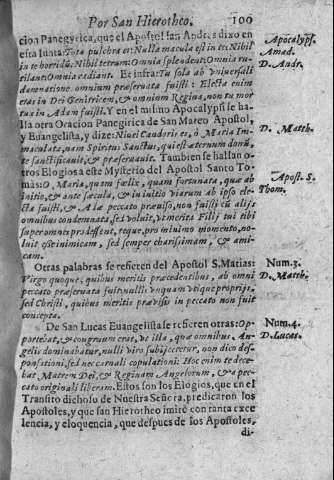 Por San Hierotheo. 100
cion Panegyrica, que el Apostol san Andres dixo en
esta Iunta: Tota pulchra es: Nulla macula est in te: Nihil
in te horridũ, Nihil tetrum: Omnia splendent: Omnia ru-
tilant: Omnia radiant. Et infra: Tu sola ab vniversali
damnatione omnium præservata fuisti: Electa enim
eras in Dei Genitricem, & omnium Regina, non tu mor-
tua in Adam fuisti. Y en el mismo Apocalypsi se ha-
lla otra Oracion Panegirica de San Mateo Apostol,
y Euangelista, y dize: Niuei Candoris es, ò Maria Im-
maculata, nam Spiritus Sanctus, qui est æternum donũ,
te sanctificauit, & præseruauit. Tambien se hallan o-
tros Elogios a este Mysterio del Apostol Santo To-
mas: O, Maria, quam fœlix, quam fortunata, quæ ab
initio, & ante sæcula, & in initio viarum ab ipso ele-
cta fuisti, & A læ peccato præuiso, non fuisti cũ alijs
omnibus condemnata, sed voluit, vt merita Filij tui tibi
superomnes prodessent, teque, pro minimo momento, no-
luit esse inimicam, sed semper charissimam, & ami-
cam.
Otras palabras se refieren del Apostol S. Matias:
Virgo quoque, quibus meritis præcedentibus, ab omni
peccato præseruata fuit: nulli vnquam vtique proprijs,
sed Christi, quibus meritis præuisis in peccato non fuit
concepta.
De San Lucas Euangelista se refieren otras: Op-
portebat, & congruum erat, vt illa, quæ omnibus An-
gelis dominabatur, nulli viro subijceretur, non dico des-
ponsationi, sed nec carnali copulationi: Hoc enim te dece-
bat Matrem Dei, & Reginam Angelorum, & a pec-
cato originali liberam. Estos son los Elogios, que en el
Transito dichoso de Nuestra Señora, predicaron los
Apostoles, y que san Hierotheo imitò con tanta exce
lencia, y eloquencia, que despues de los Apostoles,
di-
Apocalyps.
Amad.
D. Andr.
D. Matth.
Apost. S.
Thom.
Num. 3.
D. Matth.
Num. 4.
D. Lucas.